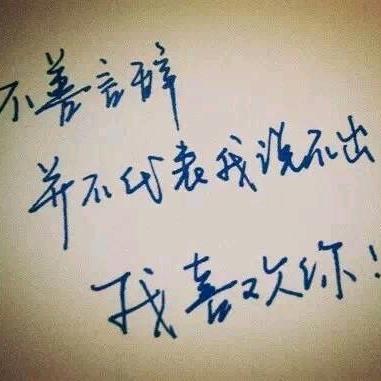 不善言辞
并不代表我说不出
我喜欢你!